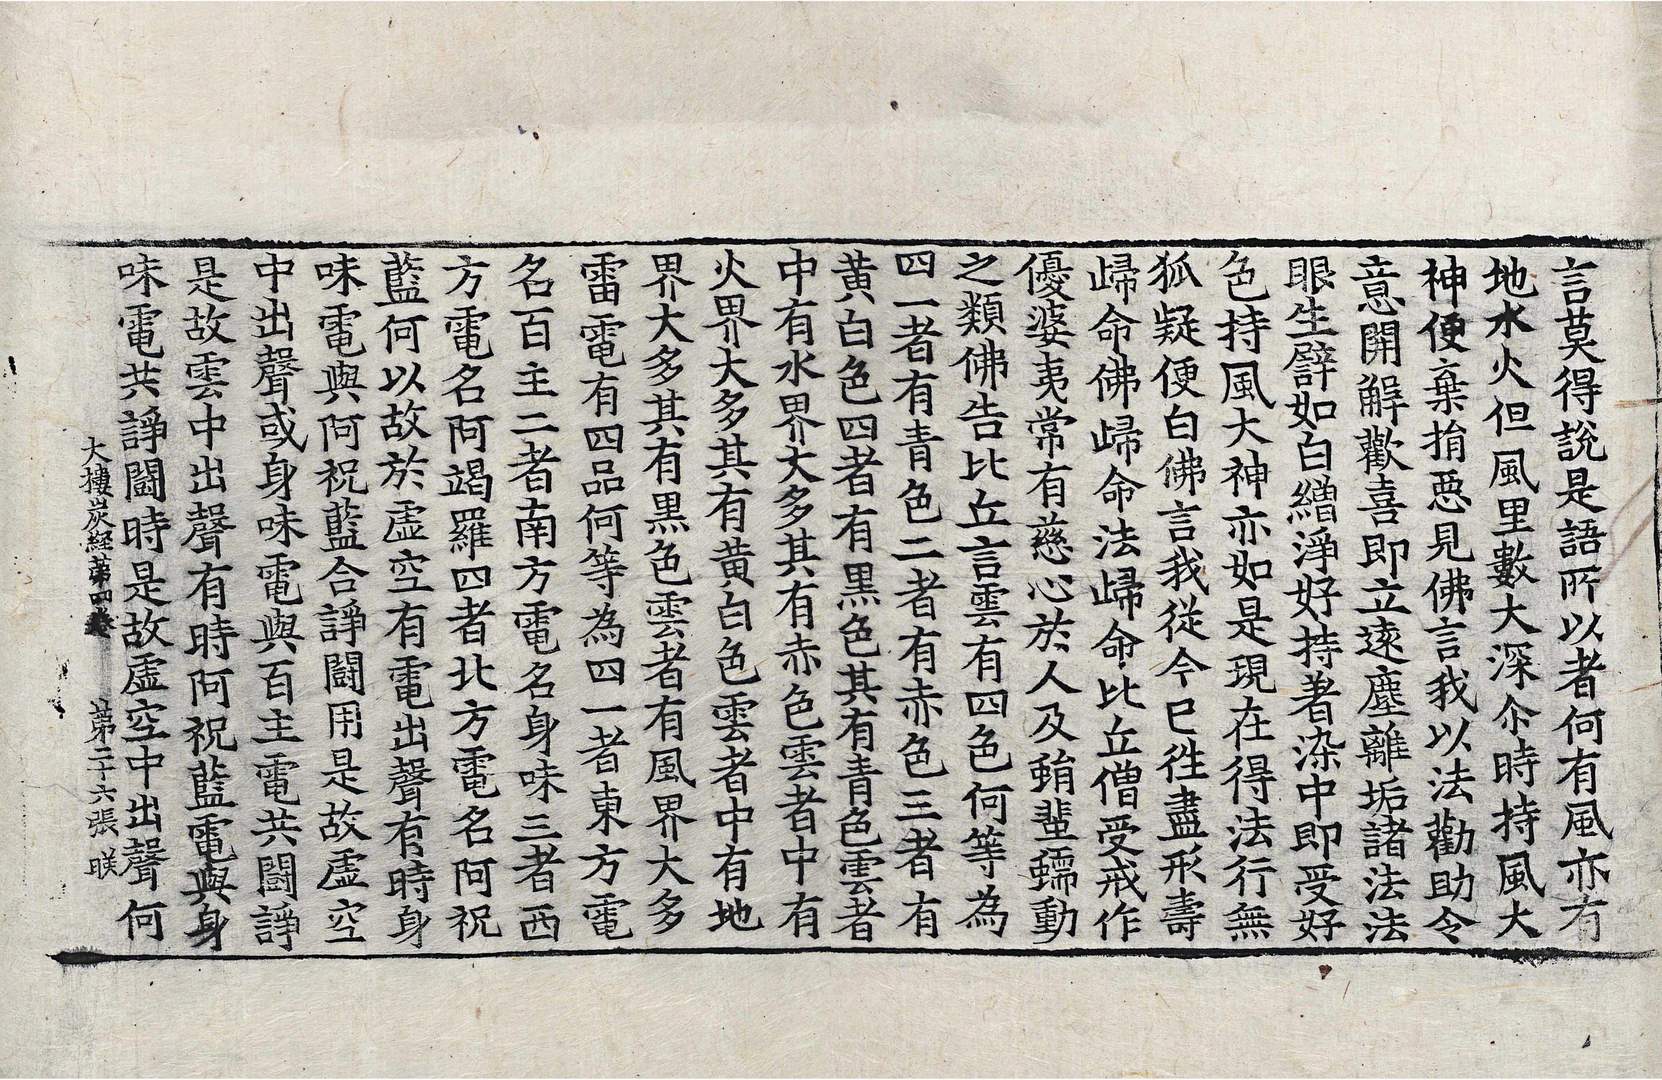 言莫得說是語所以者何有風亦有
地水火但風里數大深尒時持風大
神便棄捐惡見佛言我以法勸助令
意開解歡喜即立遠塵離垢諸法法
眼生譬如白繒淨好持著染中即受好
色持風大神亦如是現在得法行無
狐疑便白佛言我從今已往盡形壽
歸命佛歸命法歸命比丘僧受戒作
優婆夷常有慈心於人及蜎蜚蠕動
之類佛告比丘言雲有四色何等為
四一者有青色二者有赤色三者有
黃白色四者有黑色其有青色雲者
中有水界大多其有赤色雲者中有
火界大多其有黃白色雲者中有地
界大多其有黑色雲者有風界大多
雷電有四品何等為四一者東方電
名百主二者南方電名身味三者西
方電名阿竭羅四者北方電名阿祝
藍何以故於虛空有電出聲有時身
味電與阿祝藍合諍鬪用是故虛空
中出聲或身味電與百主電共鬪諍
是故雲中出聲有時阿祝藍電與身
味電共諍鬪時是故虛空中出聲何
大樓炭經第四卷 第二十六張 昃